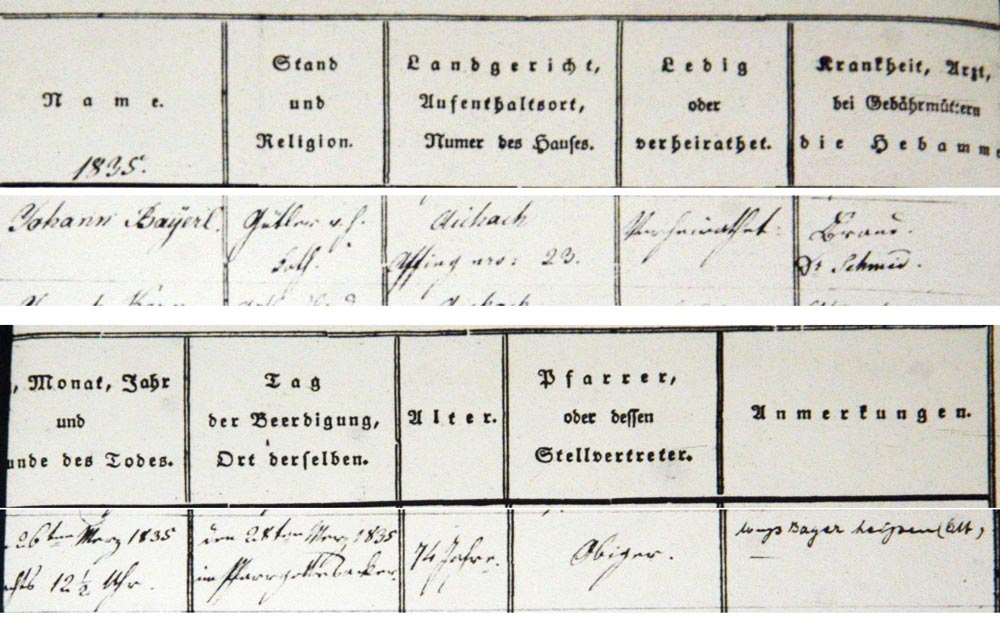 Name.
1835.
Stand
und
Religion.
Landgericht,
Aufenthaltsort,
Numer des Hauses.
Ledig
oder
verheirathet.
Krankheit, Arzt,
bei Gebährmüttern
die Hebamme
Johann Baÿerl.
Gütler v. h.
kath.
Aichach
Affing nro: 23.
Verheirathet.
Brand.
Dr Schmid.
, Monat, Jahr
und
unde des Todes.
Tag
der Beerdigung,
Ort derselben.
Alter.
Pfarrer,
oder dessen
Stellvertreter.
Anmerkungen.
26ten Merz 1835
achts 12 ½ Uhr.
den 28ten Merz 1835
im Pfarrgottesacker.
74 Jahre.
Obiger.
Bayer